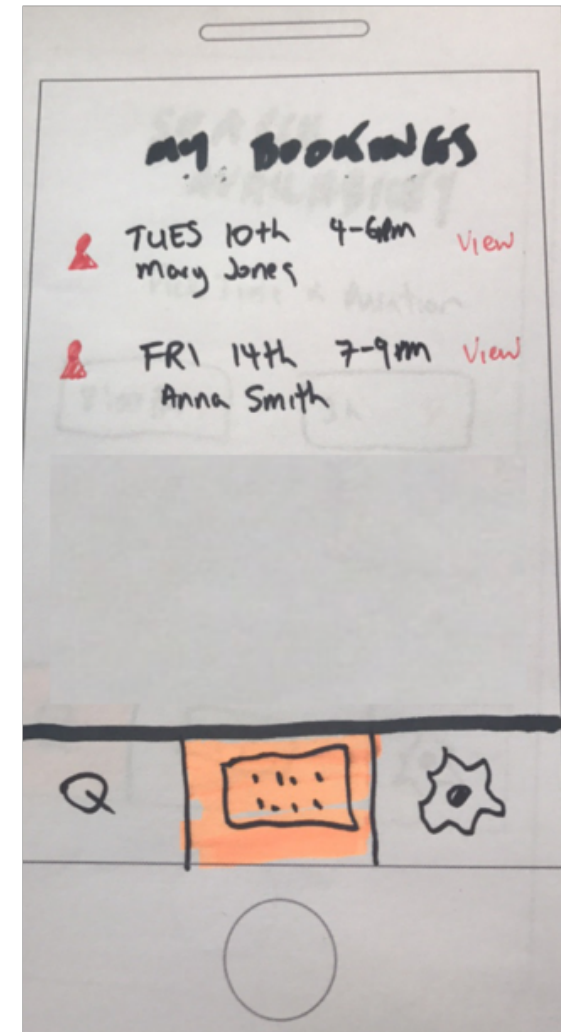 MY BOOKINGS
TUES 10th 4-6pm View
Mary Jones
FRI 14th 7-9pm View
Anna Smith